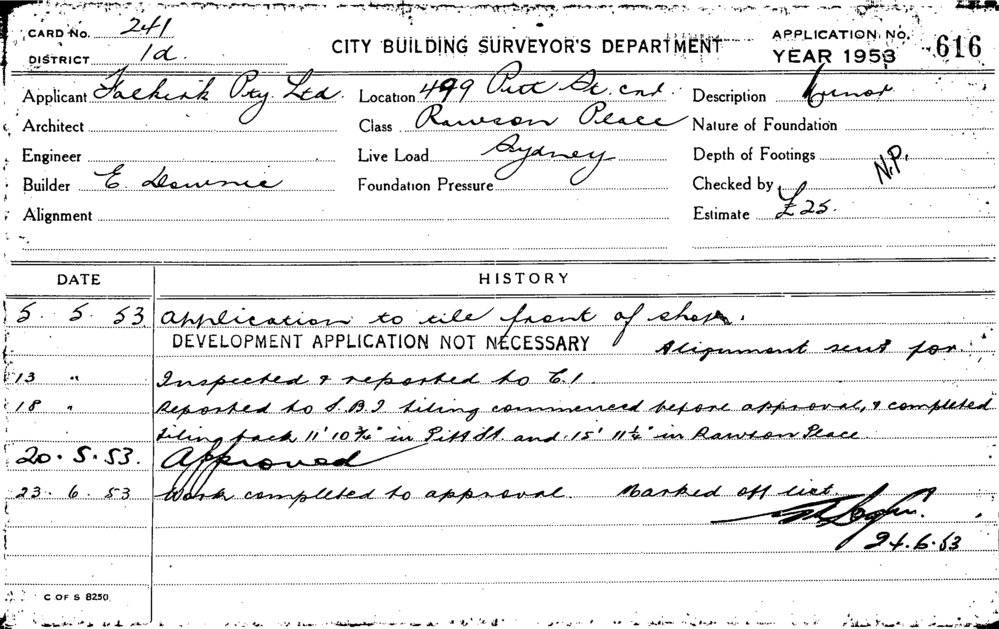 CARD No. 241
DISTRICT 1d.
CITY BUILDING SURVEYOR'S DEPARTMENT
APPLICATION No. 616
YEAR 1953
Applicant Falkirk Pty Ltd. Location 499 Pitt St. cnr Description Minor
Architect Class Rawson Place Nature of Foundation
Engineer Live Load Sydney Depth of Footings
Builder E. Downie Foundation Pressure Checked by N.P.
Alignment Estimate £25.
DATE HISTORY
5. 5. 53 Application to tile front of shop.
DEVELOPMENT APPLICATION NOT NECESSARY Alignment sent for
13 " Inspected & reported to C.I.
18 " Reported to S.B.I tiling commenced before approval, & completed
tiling back 11' 10 3/4" in Pitt St and 15' 11 1/2" in Rawson Place
20. 5. 53. Approved
23. 6. 53 Work completed to approval. Marked off list.
24.6.53
C OF S 8250